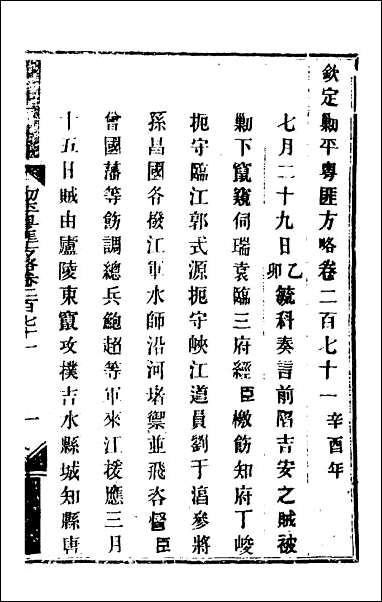 欽定勦平粵匪方略卷二百七十一辛酉年
七月二十九日乙卯毓科奏言前陷吉安之賊被
勦下竄窺伺瑞袁臨三府經臣檄飭知府丁峻
扼守臨江郭式源扼守峽江道員劉于潯參將
孫昌國各撥江軍水師沿河堵禦並飛咨督臣
曾國藩等飭調總兵鮑超等軍來江援應三月
十五日賊由廬陵東竄攻撲吉水縣城知縣唐
勦平粵匪方略卷二百七十一
一